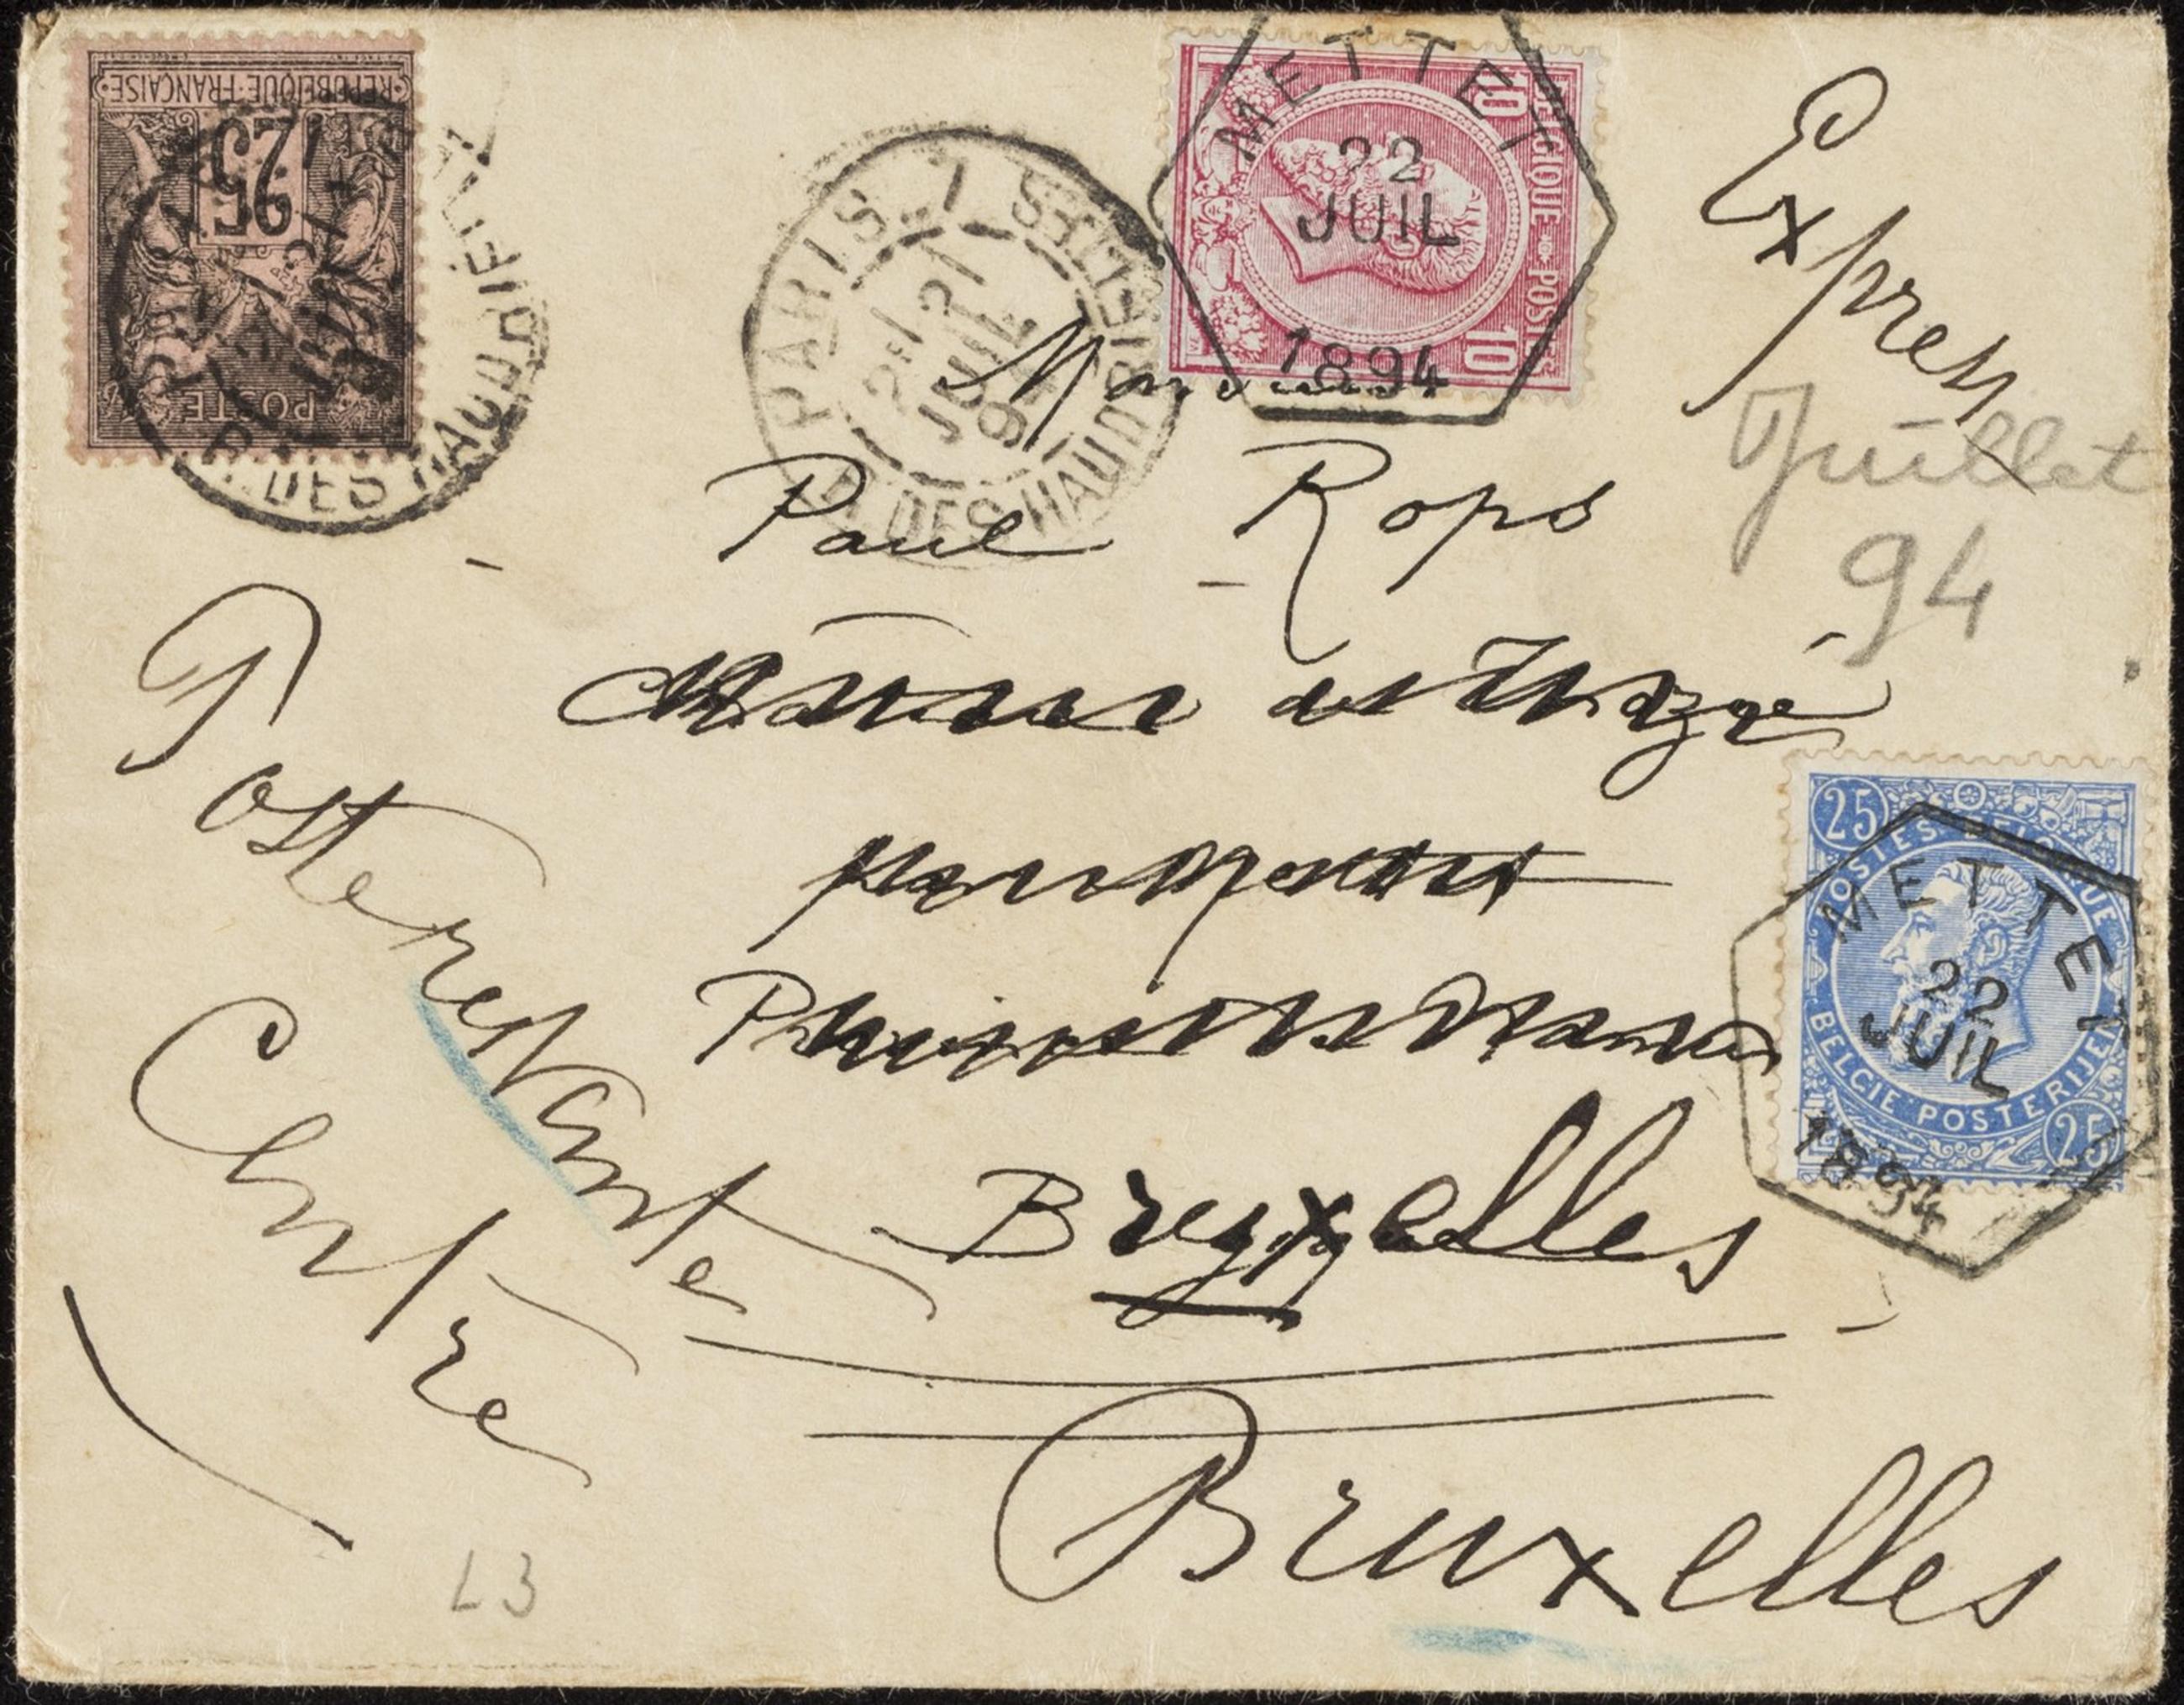 REPUBLIQUE·FRANÇAISE
25
POSTE
DES HAUDRIETTES
PARIS
21
JUIL
94
R. DES HAUDRIETTES
BELGIQUE POSTES
10
10
METTET
22
JUIL
1894
Express
Juillet
94
Monsieur
Paul Rops
Château de Thozée
par Mettet
Province de Namur
Bruxelles
Poste restante
Centre
Bruxelles
25
POSTES BELGIQUE
BELGIE POSTERIJEN
25
METTET
22
JUIL
1894
L3